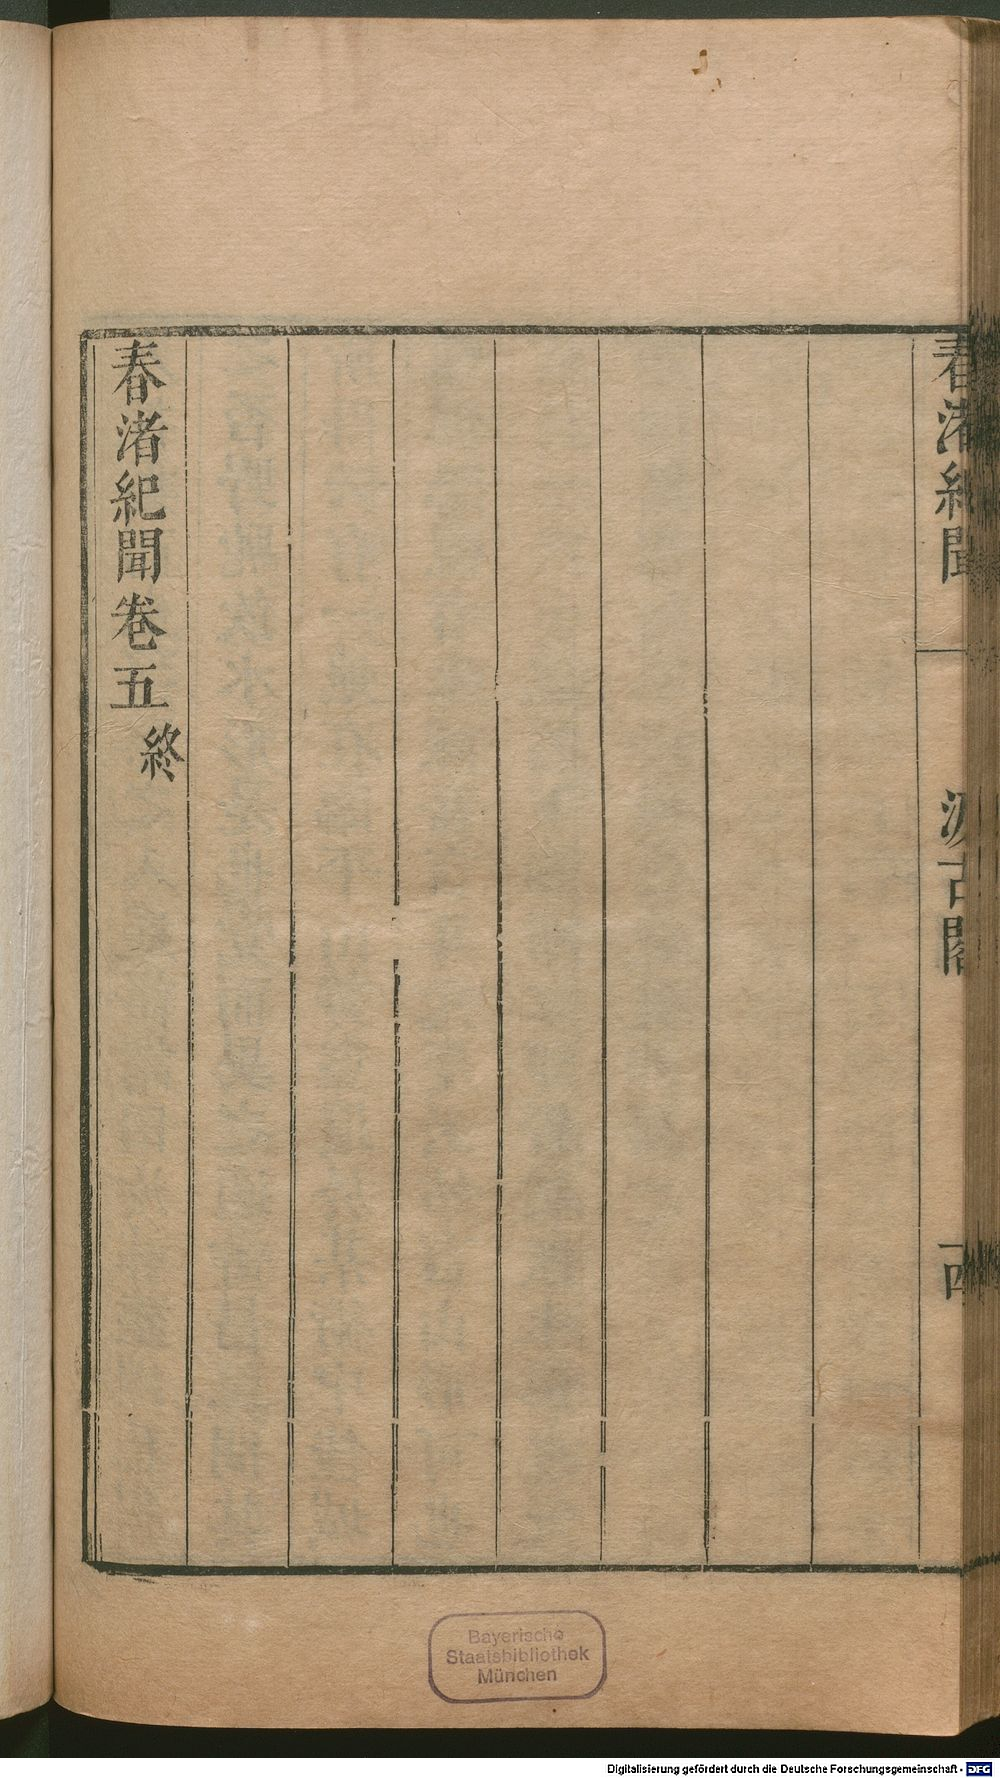 春渚紀聞
汲古閣
春渚紀聞卷五
終
Bayerische
Staatsbibliothek
München
Digitalisierung gefördert durch die Deutsche Forschungsgemeinschaft - DFG